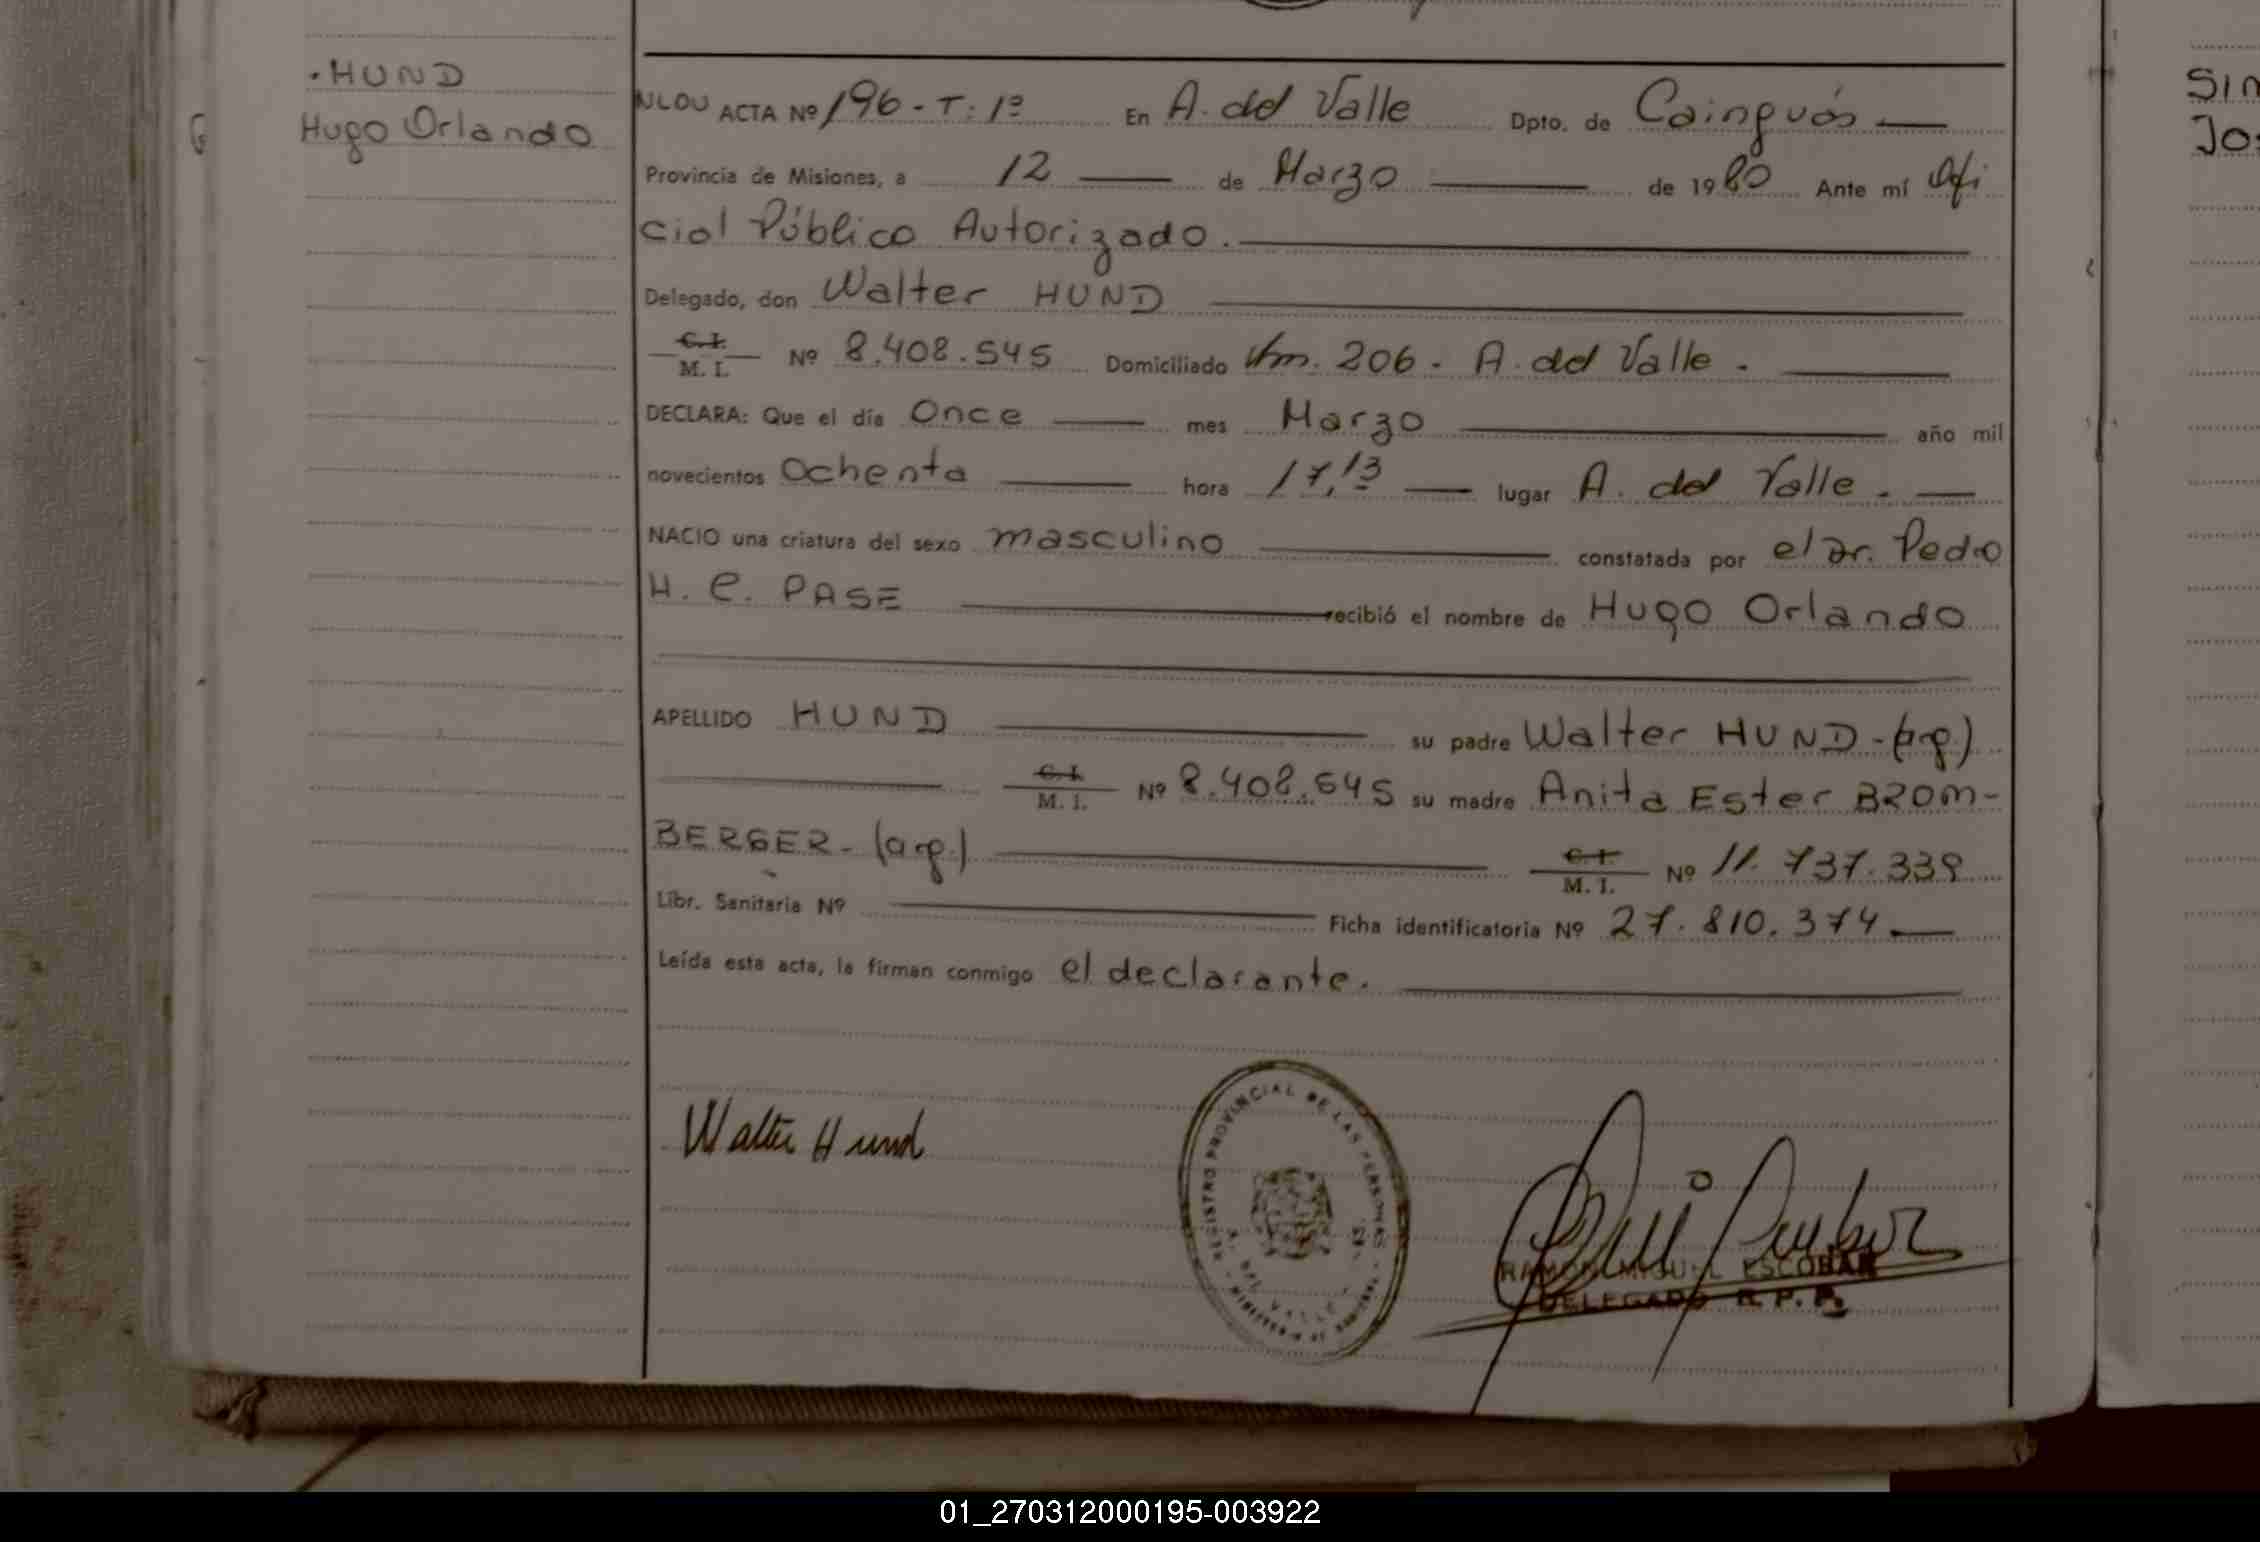 . HUND
Hugo Orlando
ACTA Nº 196 - T: 1º En A. del Valle Dpto. de Cainguás
Provincia de Misiones, a 12 de Marzo de 1980 Ante mí Ofi
cial Público Autorizado.
Delegado, don Walter HUND
C. I.
M. I. Nº 8.408.545 Domiciliado Km. 206 - A. del Valle.
DECLARA: Que el día Once mes Marzo año mil
novecientos Ochenta hora 17,13 lugar A. del Valle.
NACIO una criatura del sexo masculino constatada por el Dr. Pedro
H. C. PASE recibió el nombre de Hugo Orlando
APELLIDO HUND su padre Walter HUND - (arg.)
C. I.
M. I. Nº 8.408.545 su madre Anita Ester BROM-
BERGER - (arg.) C. I.
M. I. Nº 11.737.339
Libr. Sanitaria Nº Ficha identificatoria Nº 27.810.374
Leída esta acta, la firman conmigo el declarante.
Walter Hund
REGISTRO PROVINCIAL DE LAS PERSONAS
A. DEL VALLE
RAMON MIGUEL ESCOBAR
DELEGADO R. P. P.
SIN
JOS
01_270312000195-003922